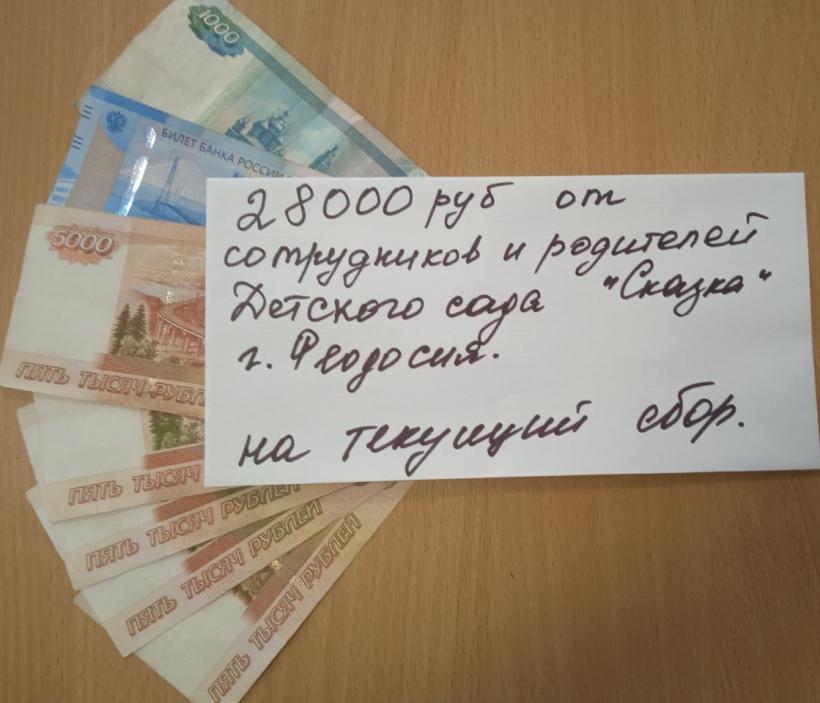 1000
БИЛЕТ БАНКА РОССИИ
5000
ПЯТЬ ТЫСЯЧ РУБЛ
ПЯТЬ ТЫСЯЧ
ПЯТЬ ТЫСЯЧ РУБЛЕЙ
ПЯТЬ ТЫСЯЧ РУБЛЕЙ
ПЯТЬ ТЫСЯЧ РУБЛЕЙ
28000 руб от
сотрудников и родителей
Детского сада "Сказка"
г. Феодосия.
на текущий сбор.